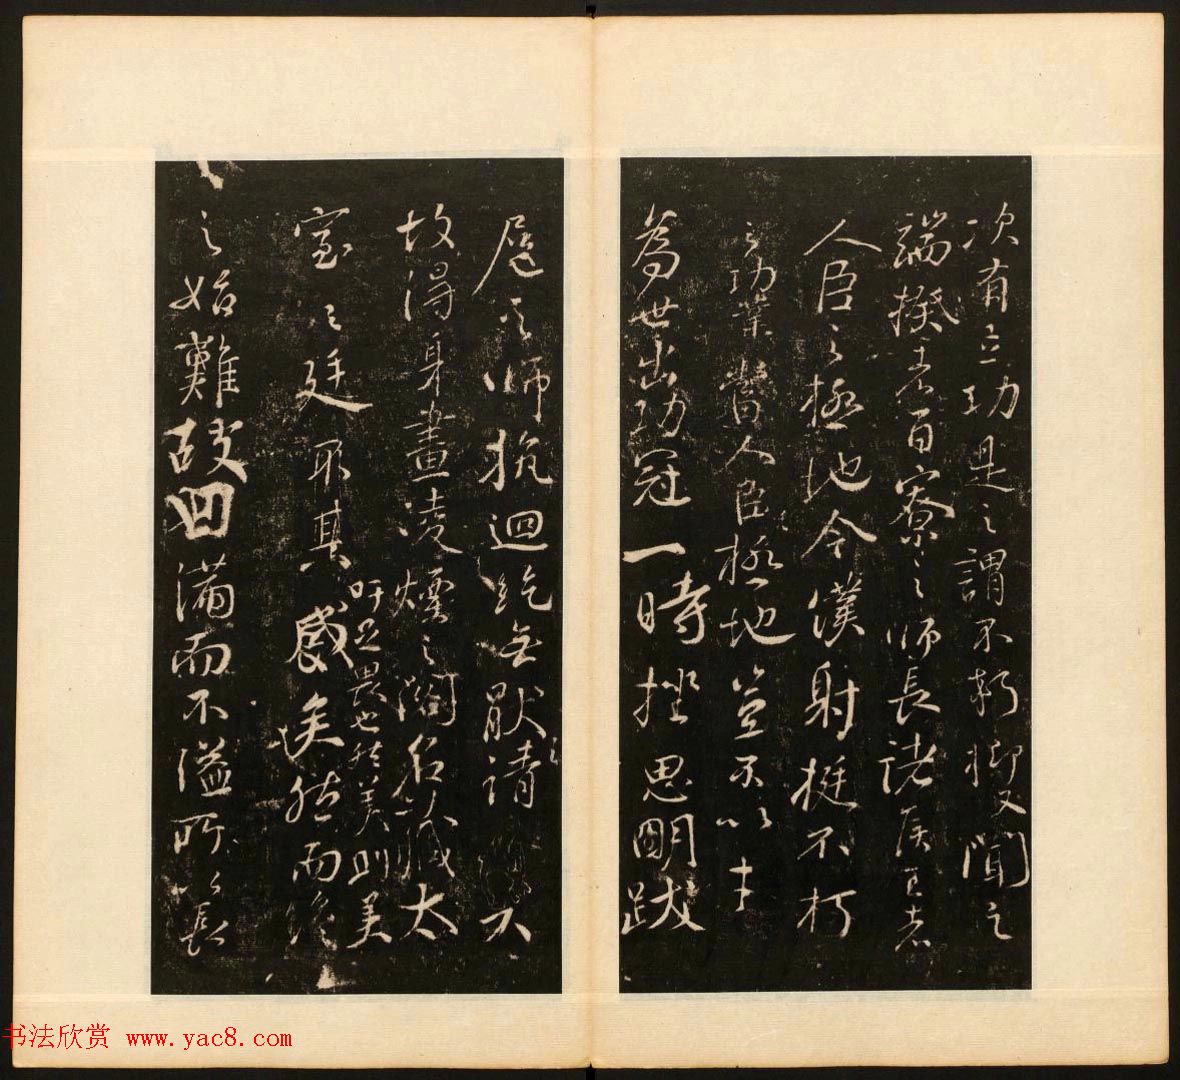 次有立功是之謂不朽抑又聞之
端揆者百寮之師長諸侯王者
人臣之極地今僕射挺不朽
之功業當人臣極地豈不以才
為世出功冠一時挫思明跋
扈之師抗迴紇無厭之請
故得身畫凌煙之閣名藏太
吁足畏也然美則美
室之廷耶其矣然而終
之始難故曰滿而不溢所以長
书法欣赏 www.yac8.com